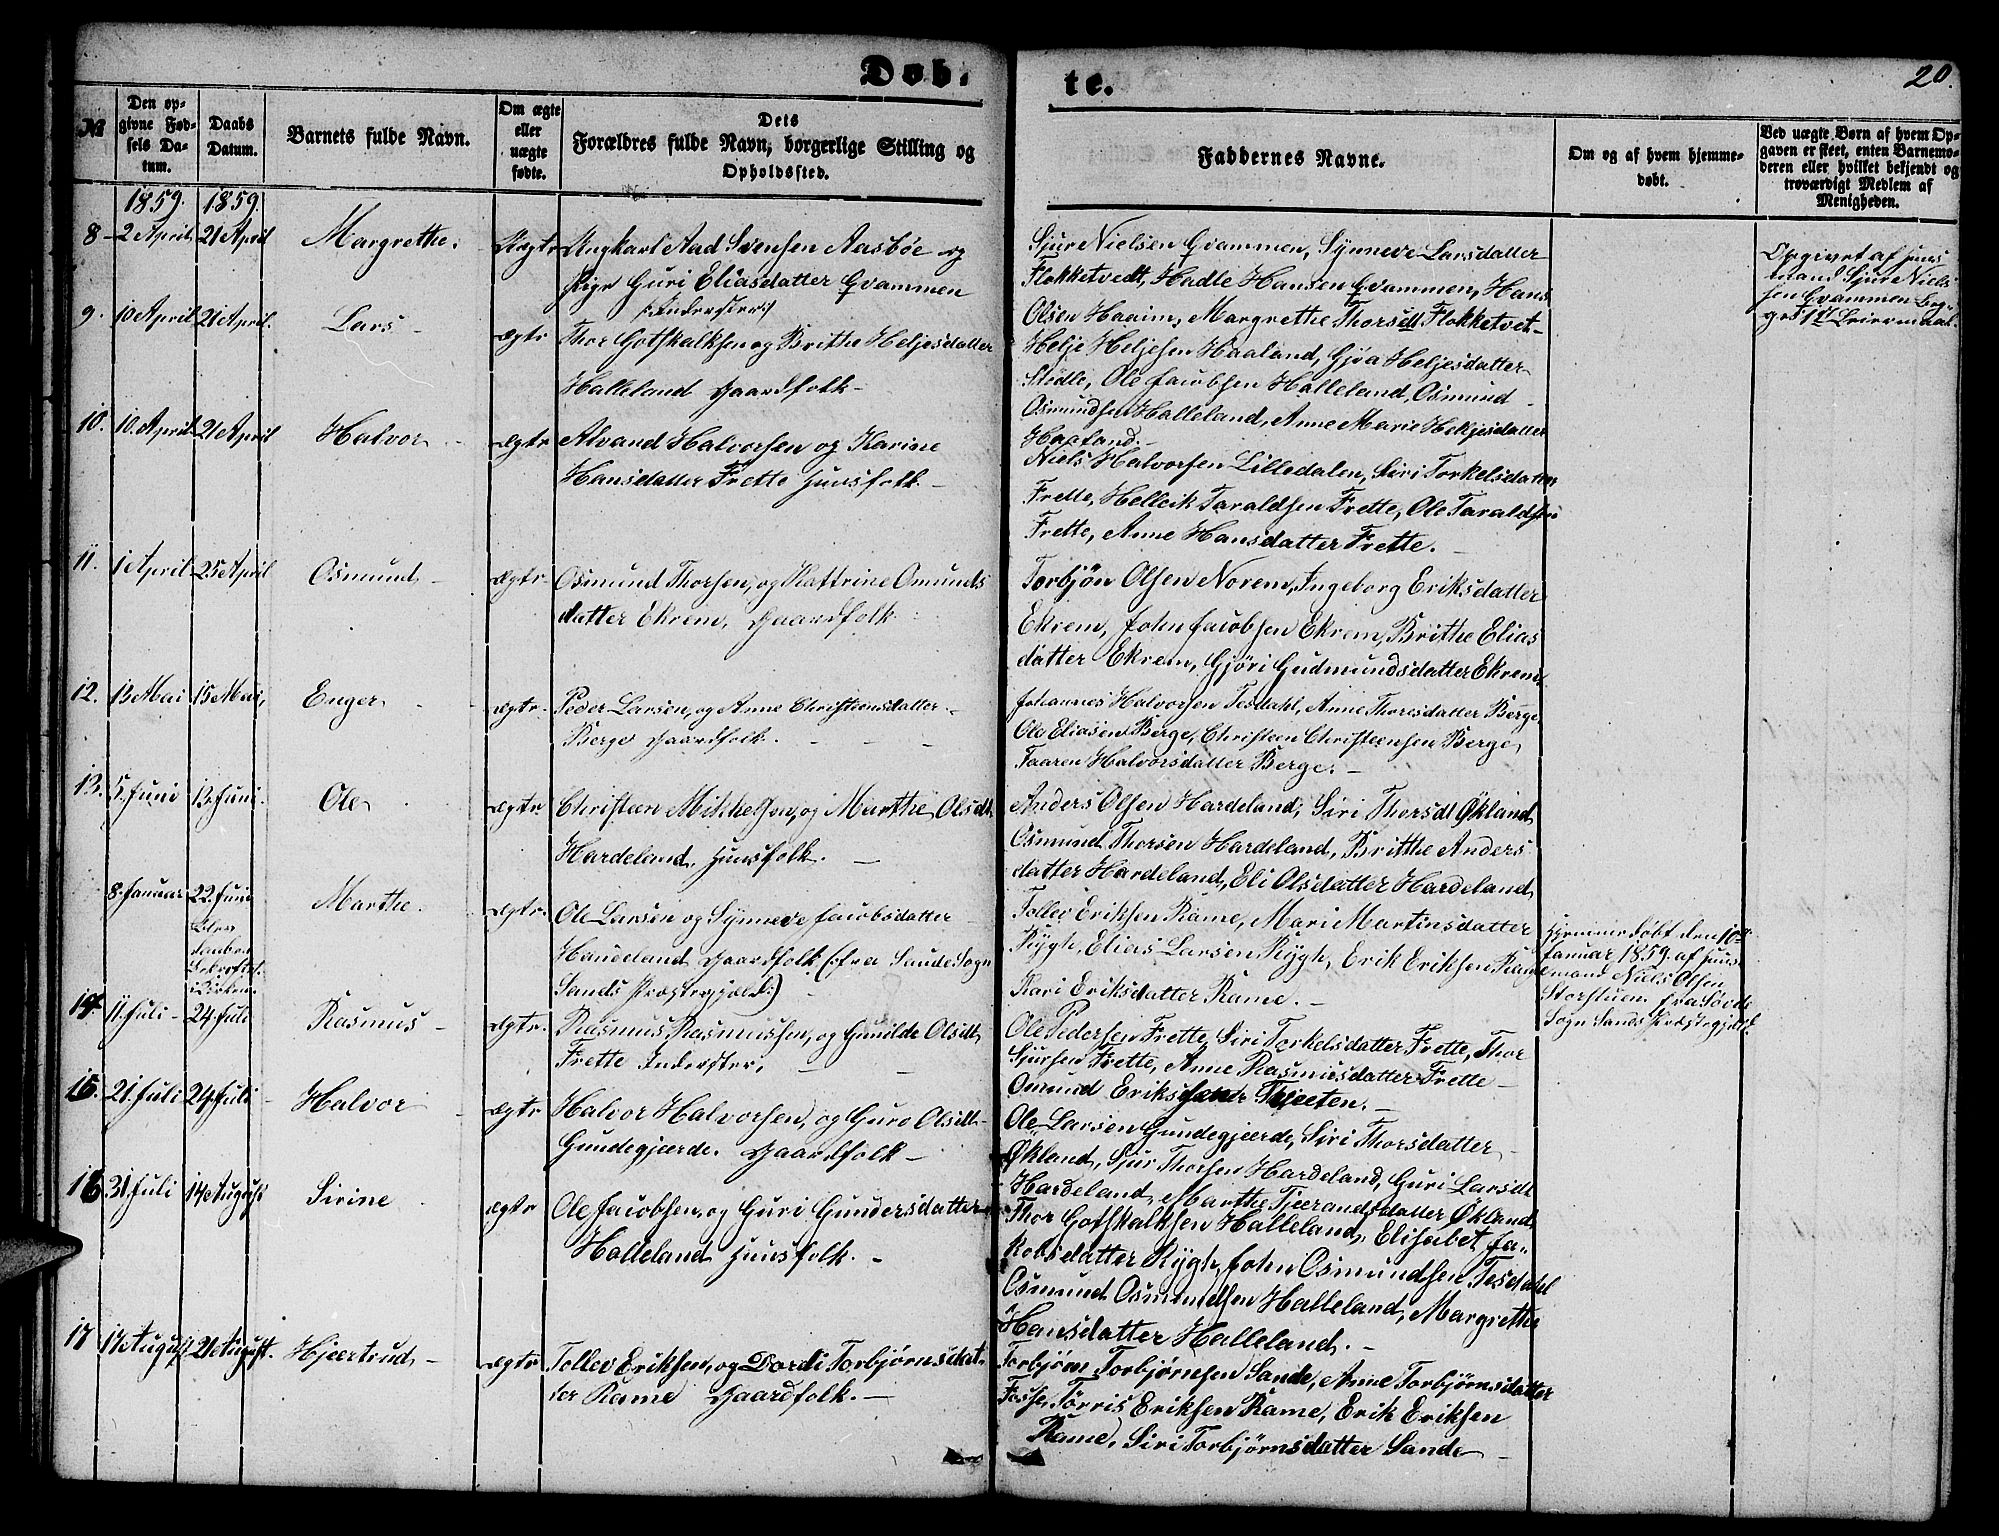 Døb-
te.
20.
№
Den op-
givne Fød-
sels Da-
tum.
Daabs
Datum.
Barnets fulde Navn.
Om ægte
eller
uægte
fødte.
Dets
Forældres fulde Navn, borgerlige Stilling og
Opholdssted.
Faddernes Navne.
Om og af hvem hjemme-
døbt.
Ved uægte Børn af hvem Op-
gaven er skeet, enten Barnemo-
deren eller hvilket bekjendt og
troværdigt Medlem af
Menigheden.
1859. 1859
8 2 April 21 April Margrethe. Uægte Ungkarl Aad Svensen Aasbøe og
Pige Guri Eliasdatter Qvammen
Sjur Nielsen Qvammen, Synneve Larsdatter
Flokketvedt, Hadle Hansen Qvammen, Hans
Olsen Haaim, Margrethe Thorsdt Flokketvet
Opgivet af huus
mand Sjure Niels
sen Qvammen Beg-
ges 1ste Leiermaal.
9. 10 April 21 April. Lars ægte (Inderster)
Thor Gotskalksen og Brithe Heljesdatter
Halleland Gaardfolk
Helje Heljesen Haaland, Gjøa Heljesdatter
Stødle, Ole Jacobsen Halleland, Osmund
Osmundsen Halleland, Anne Marie Heljesdatter
Haaland.
10. 10. April 21 April Halvor ægte Alvand Halvorsen og Karine
Hansdatter Frette Huusfolk.
Niels Halvorsen Lilledalen, Siri Torkelsdatter
Frette, Helleik Taraldsen Frette, Ole Taraldsen
Frette, Anne Hansdatter Frette.
11. 1 April 25 April Osmund ægte Osmund Thorsen, og Kattrine Omunds
datter Ekrem, Gaardfolk
Torbjøn Olsen Norem, Ingeborg Eriksdatter
Ekrem, John Jacobsen Ekrem, Brithe Elias
datter Ekrem, Gjøri Gudmundsdatter Ekrem.
12. 13 Mai 15 Mai, Enger ægte. Peder Larsen, og Anne Christensdatter
Berge Gaardfolk.
Johannes Halvorsen Tesdahl, Anne Thoresdatter Berge,
Ole Eliasen Berge, Christen Christensen Berge
Taaren Halvorsdatter Berge.
13. 5. Juni 13 Juni. Ole ægte. Christen Mikkelsen, og Marthe Olsdt.
Hardeland. Huusfolk.
Anders Olsen Hardeland, Siri Thorsdt Økland
Osmund Thorsen Hardeland, Britthe Anders
datter Hardeland, Eli Olsdatter Hardeland
8. Januar 22. Juni Marthe. ægte. Ole Larsen og Synneve Jacobsdatter
Blev
daaben
Bekræftet
i Kirken.
Haudeland Gaardfolk (fra Saude Sogn
Sands Præstegjeld:)
Tollev Eriksen Rame, Mari Martinsdatter
Rygh, Elias Larsen Rygh, Erik Eriksen Rame
Kari Eriksdatter Rame.
Hjemme døbt den 10de
Januar 1859. af huus
mand Niels Olsen
Storstuen fra Søvde
Sogn Sands Præstegjeld.
14. 11. Juli 24 Juli Rasmus ægte. Rasmus Rasmussen, og Gunilde Olsdt.
Frette Inderster,
Ole Pedersen Frette, Siri Torkelsdatter Frette, Thor
Sjursen Frette, Anne Rasmusdatter Frette
Omund Eriksen Tveeten.
15. 21. Juli 24 Juli Halvor ægte Halvor Halvorsen, og Guro Olsdt
Gundegjærde. Gaardfolk
Ole Larsen Gundegjærde, Siri Thorsdatter
Økland, Sjur Thorsen Hardeland, Guri Larsdt
Hardeland, Marthe Tjerandsdatter Økland
16 31 Juli 14 August Sirine ægte Ole Jacobsen, og Guri Gundersdatter
Halleland Huusfolk.
Thor Gotskalksen Halleland, Elisabet Ja-
kobsdatter Rygh, John Osmundsen Tesdahl
Osmund Osmundsen Halleland, Margrethe
Hansdatter Halleland.
17 17 August 21 August. Hjeertrud ægte Tollev Eriksen, og Dordi Torbjørnsdat-
ter Rame Gaardfolk.
Torbjørn Torbjørnsen Sande, Anne Torbjørnsdatter
Fosse, Tørris Eriksen Rame, Erik Eriksen
Rame, Siri Torbjørnsdatter Sande